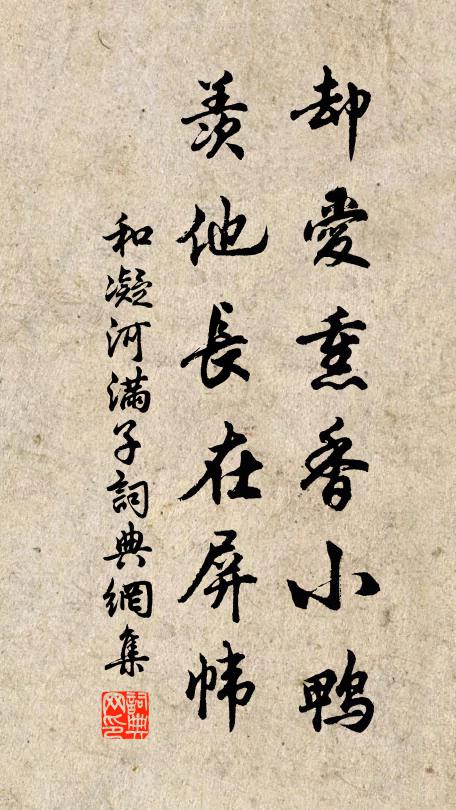 却愛熏香小鴨
羨他長在屏幃
和凝河滿子詞典網集
詞典網印